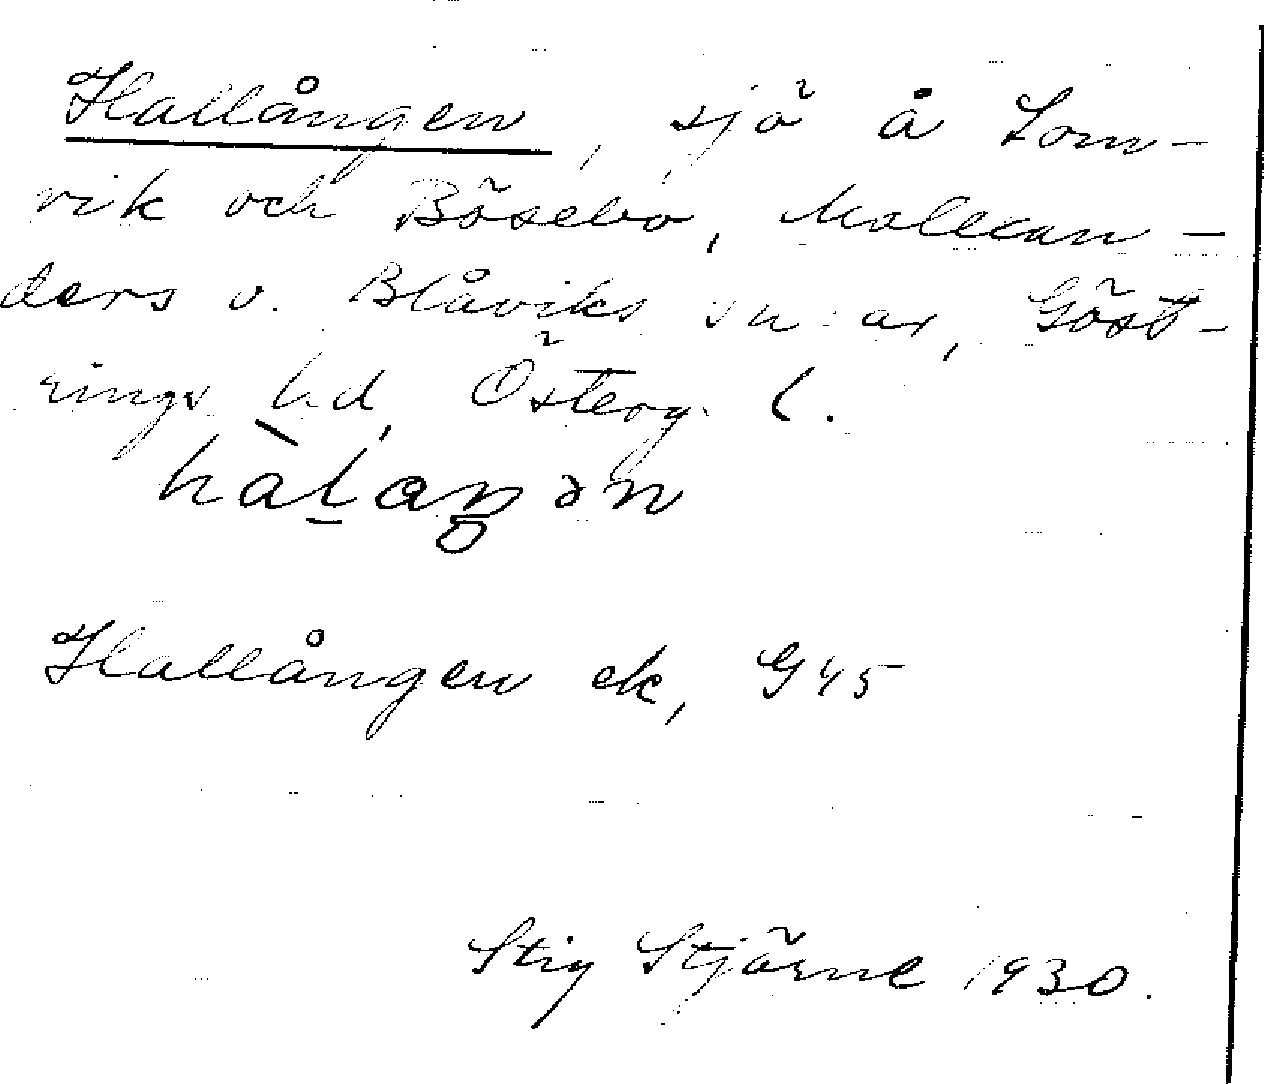 Hallången, sjö å Lom-
vik och Bösebo, Malexan-
ders o. Blåviks sn:ar, Göst-
rings hd, Österg. l.
Hallången ek, G 45
Stig Stjärne 1930.